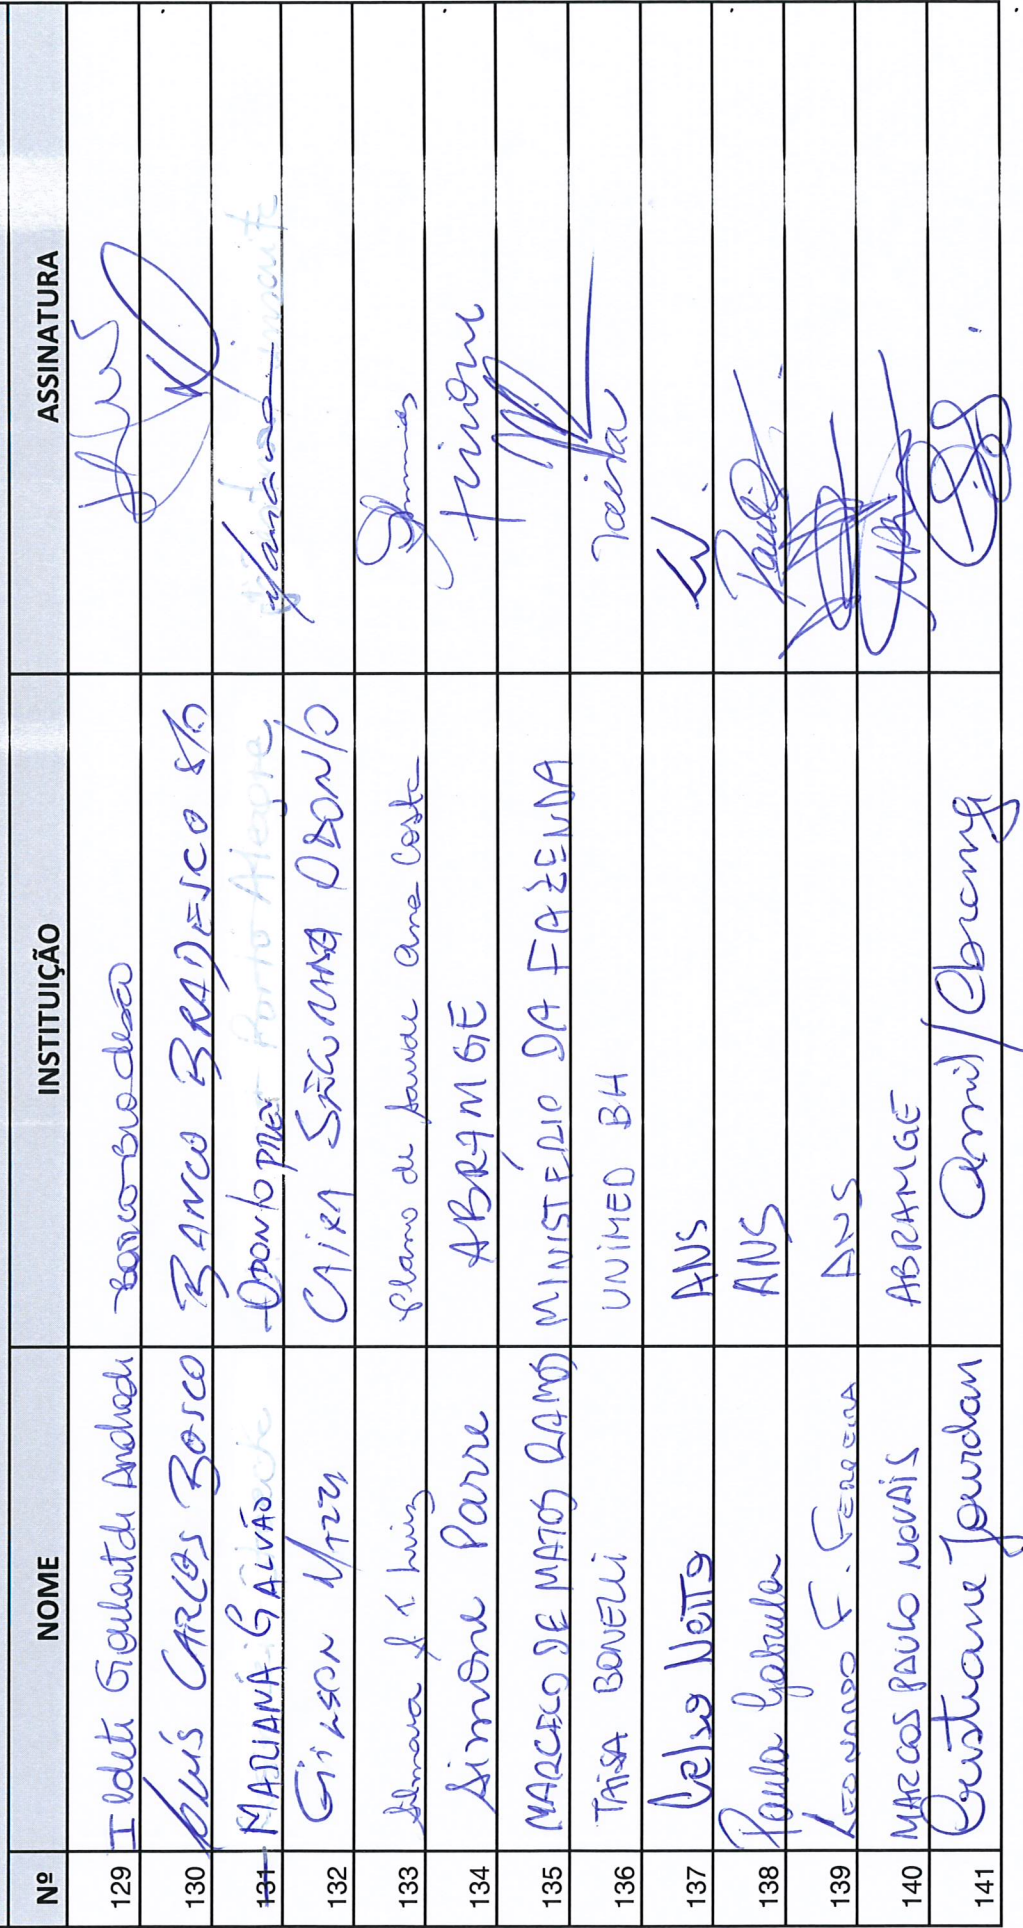 Nº NOME INSTITUIÇÃO ASSINATURA
129 Ildete Goulart de Andrade banco bradesco
130 Luís CARLOS BOSCO BANCO BRADESCO S/A
131 MARIANA GALVÃO ODONTOPREV Porto Alegre Mariana
132 Gilson CAIXA SEGURADORA ODONTO
133 Plano de Saúde Ana Costa
134 Simone Parre ABRAMGE Simone
135 MARCELO DE MATOS RAMOS MINISTÉRIO DA FAZENDA
136 TAÍSA BONELLI UNIMED BH Taísa
137 Celso Netto ANS
138 Paula Gabriela ANS Paula
139 LEONARDO F. FERREIRA ANS
140 MARCOS PAULO NOVAIS ABRAMGE
141 Cristiane Jourdan Amil / Abramge